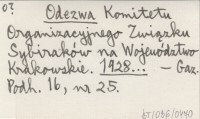 07
Odezwa Komitetu
Organizacyjnego Związku
Sybiraków na Województwo
Krakowskie. 1928... – Gaz.
Podh. 16, nr 25.